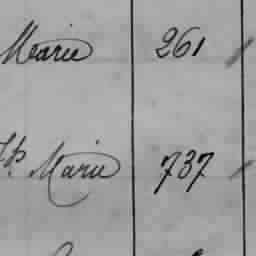 Marie 261
Jh Marie 737